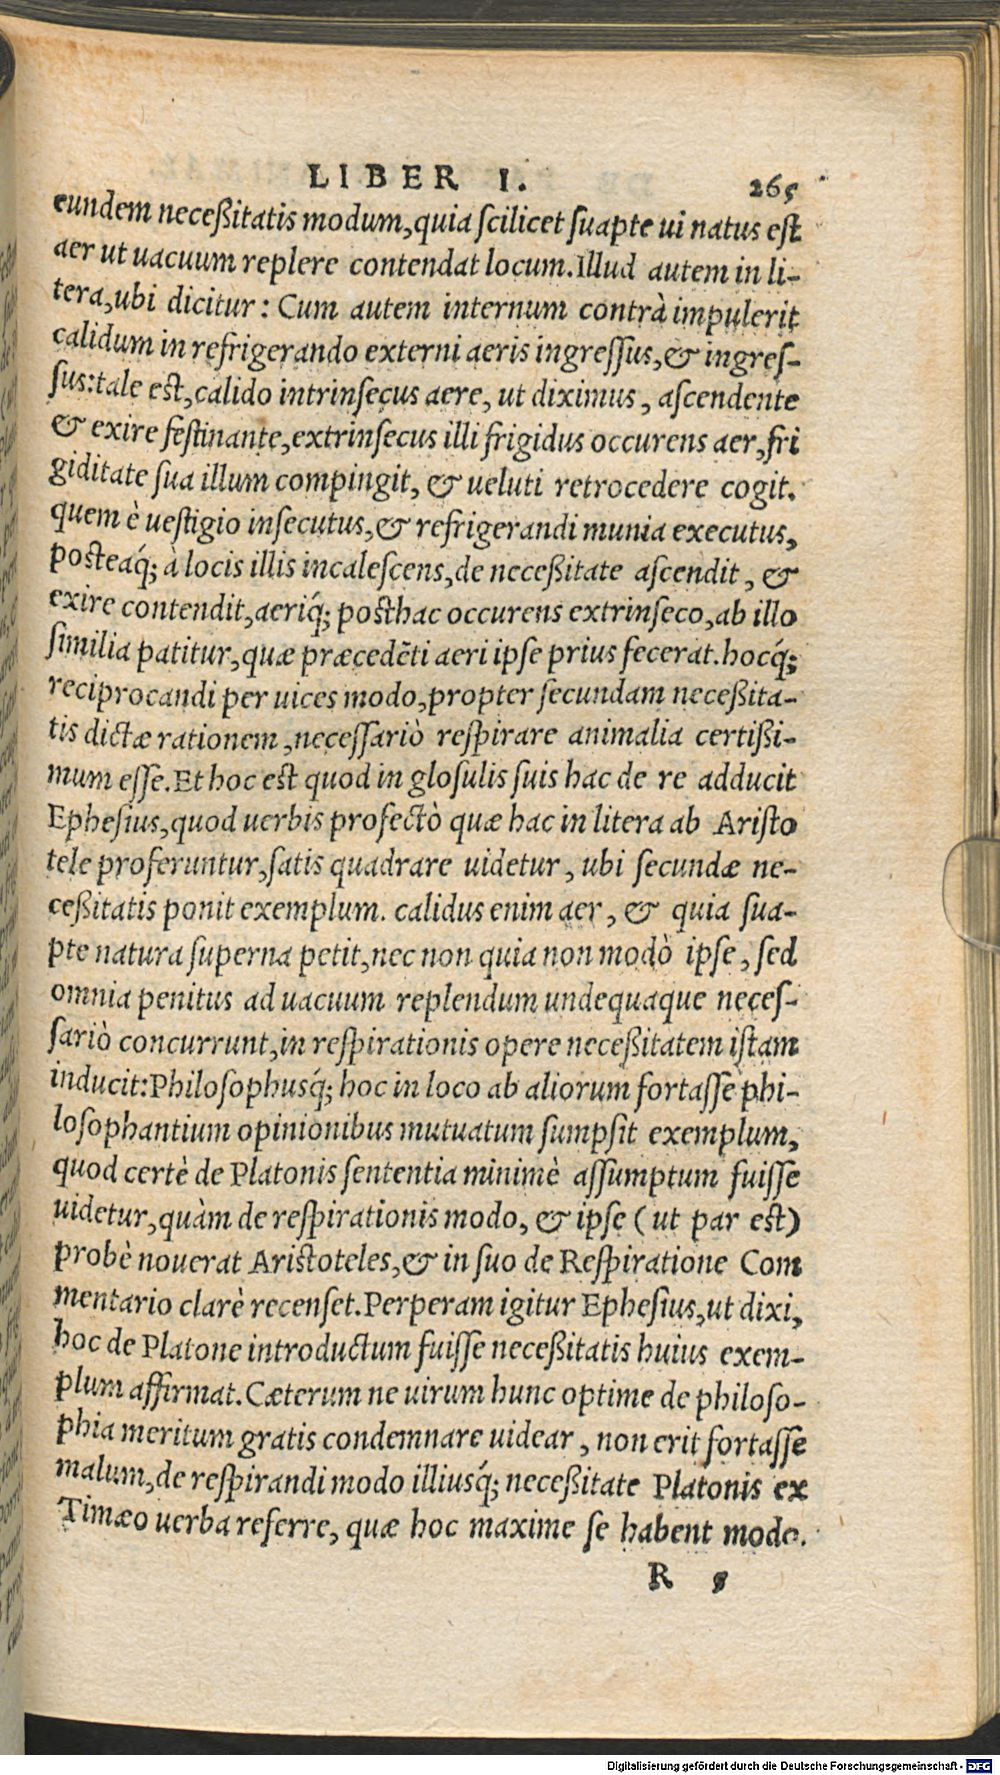 LIBER I. 265
eundem neceßitatis modum,quia ſcilicet ſuapte ui natus eſt
aer ut uacuum replere contendat locum.Illud autem in li-
tera,ubi dicitur: Cum autem internum contrà impulerit
calidum in refrigerando externi aeris ingreſſus,& ingreſ-
ſus:tale eſt,calido intrinſecus aere, ut diximus, aſcendente
& exire feſtinante,extrinſecus illi frigidus occurens aer,fri
giditate ſua illum compingit, & ueluti retrocedere cogit.
quem è ueſtigio inſecutus,& refrigerandi munia executus,
poſteaq́; à locis illis incaleſcens,de neceßitate aſcendit, &
exire contendit,aeriq́; poſthac occurens extrinſeco,ab illo
ſimilia patitur,quæ præcedẽti aeri ipſe prius fecerat.hocq́;
reciprocandi per uices modo,propter ſecundam neceßita-
tis dictæ rationem,neceſſariò reſpirare animalia certißi-
mum eſſe.Et hoc eſt quod in gloſulis ſuis hac de re adducit
Epheſius,quod uerbis profectò quæ hac in litera ab Ariſto
tele proferuntur,ſatis quadrare uidetur, ubi ſecundæ ne-
ceßitatis ponit exemplum. calidus enim aer, & quia ſua-
pte natura ſuperna petit,nec non quia non modò ipſe, ſed
omnia penitus ad uacuum replendum undequaque neceſ-
ſariò concurrunt,in reſpirationis opere neceßitatem iſtam
inducit:Philoſophusq́; hoc in loco ab aliorum fortaſſe phi-
loſophantium opinionibus mutuatum ſumpſit exemplum,
quod certè de Platonis ſententia minimè aſſumptum fuiſſe
uidetur,quàm de reſpirationis modo, & ipſe (ut par eſt)
probè nouerat Ariſtoteles,& in ſuo de Reſpiratione Com
mentario clarè recenſet.Perperam igitur Epheſius,ut dixi,
hoc de Platone introductum fuiſſe neceßitatis huius exem-
plum affirmat.Cæterum ne uirum hunc optime de philoſo-
phia meritum gratis condemnare uidear, non erit fortaſſe
malum,de reſpirandi modo illiusq́; neceßitate Platonis ex
Timæo uerba referre, quæ hoc maxime ſe habent modo.
R 5
Digitalisierung gefördert durch die Deutsche Forschungsgemeinschaft - DFG